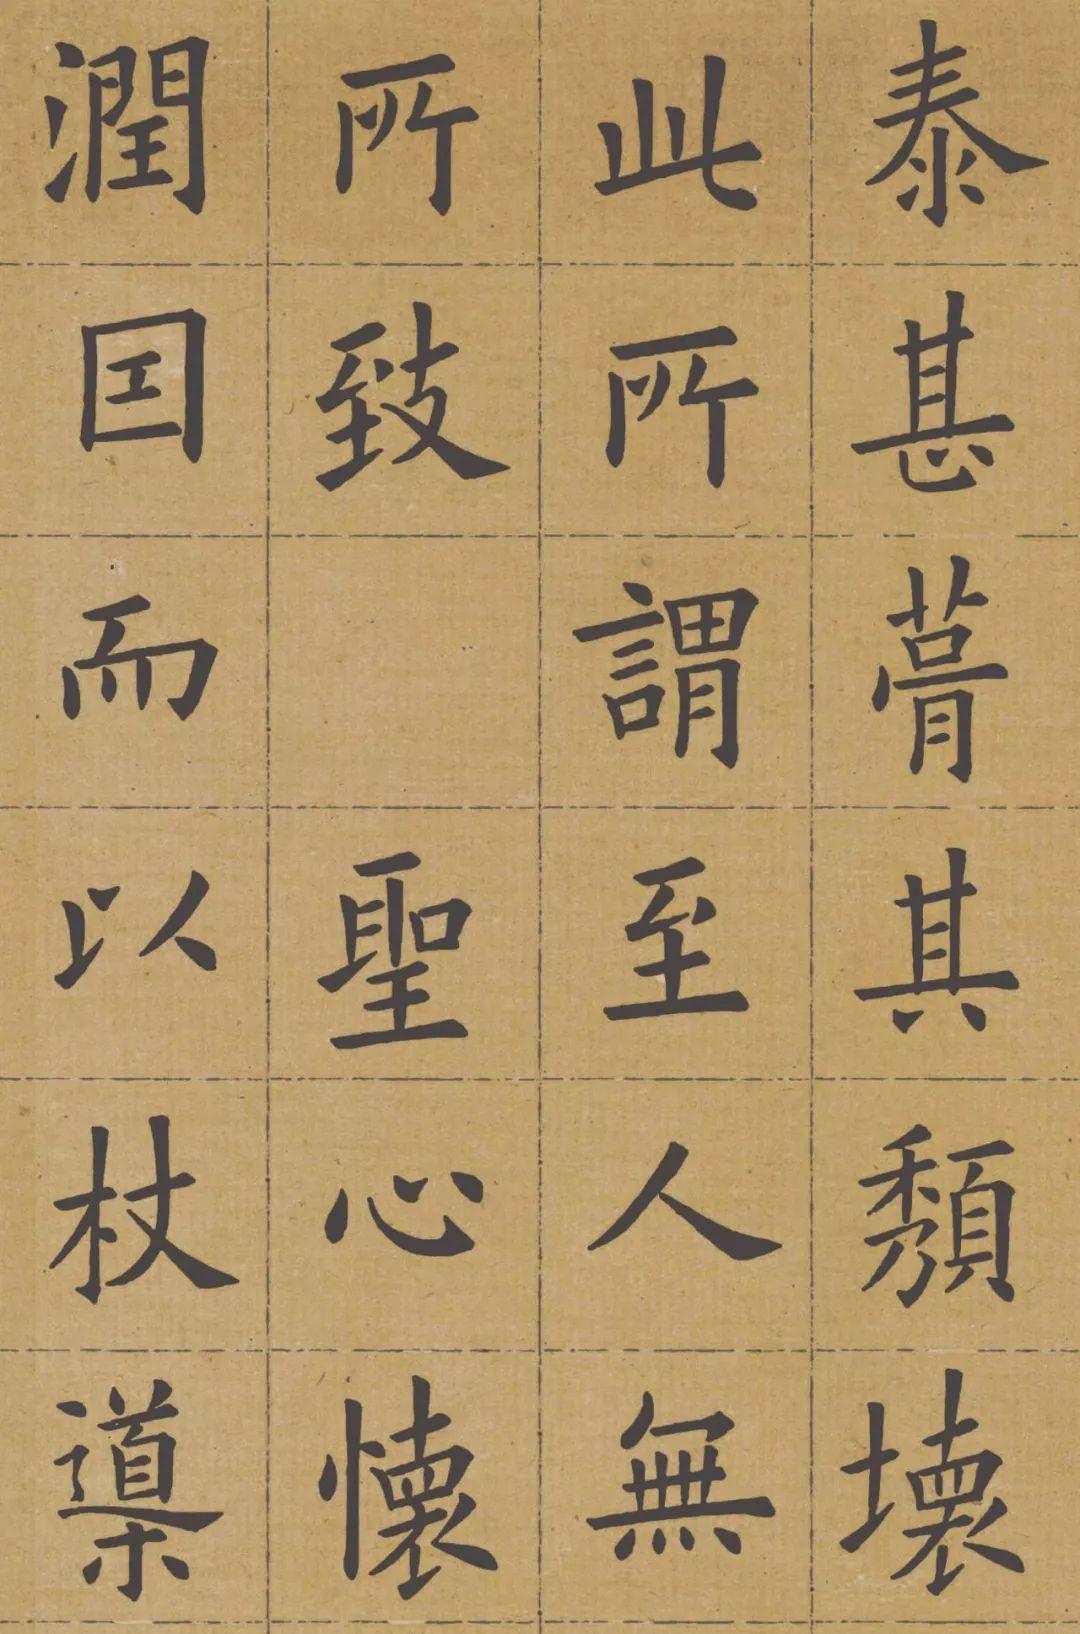 泰甚葺其頽壞
此所謂至人無
所致 聖心懷
潤因而以杖導